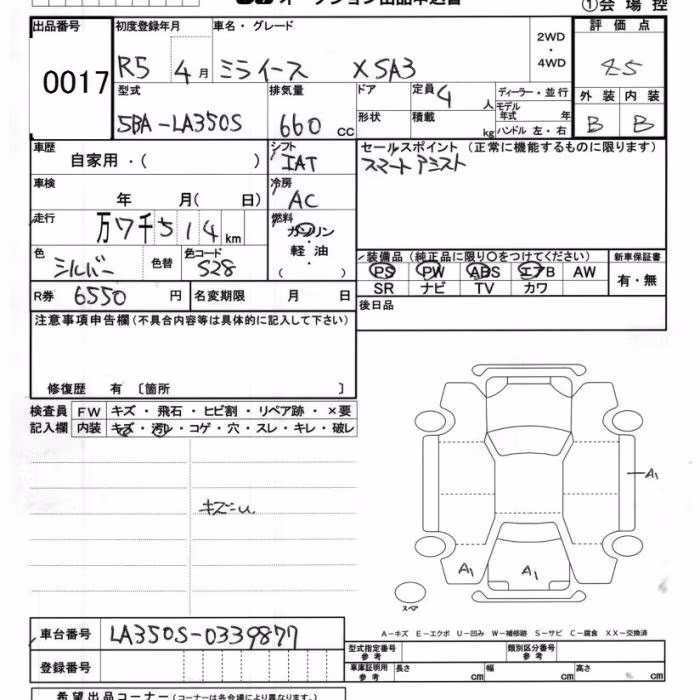 ①会場控
出品番号 初度登録年月 車名・グレード 2WD・4WD 評価点
0017 R5 4月 ミライース X SA3 4.5
型式 排気量 ドア 定員 4人 ディーラー・並行 外装 内装
5BA-LA350S 660cc 形状 積載 kg モデル年式 年 ハンドル 左・右 B B
車歴 シフト セールスポイント (正常に機能するものに限ります)
自家用・( ) IAT スマートアシスト
車検 冷房
年 月( 日) AC
走行 燃料
万7千514km ガソリン・軽油・( )
色 シルバー 色替 色コード S28
装備品(純正品に限り〇をつけてください) 新車保証書
PS PW ABS エアB AW 有・無
SR ナビ TV カワ
R券 6550円 名変期限 月 日 後日品
注意事項申告欄(不具合内容等は具体的に記入して下さい)
修復歴 有〔箇所 〕
検査員 FW キズ・飛石・ヒビ割・リペア跡・×要
記入欄 内装 キズ・汚レ・コゲ・穴・スレ・キレ・破レ
A1
キズ=u.
A1 A1
スペア
A-キズ E-エクボ U-凹み W-補修跡 S-サビ C-腐食 XX-交換済
車台番号 LA350S-0339877
型式指定番号 参考 類別区分番号 参考
登録番号 車庫証明用 参考 長さ cm 幅 cm 高さ cm
希望出品コーナー(コーナーは各会場により異なります。)